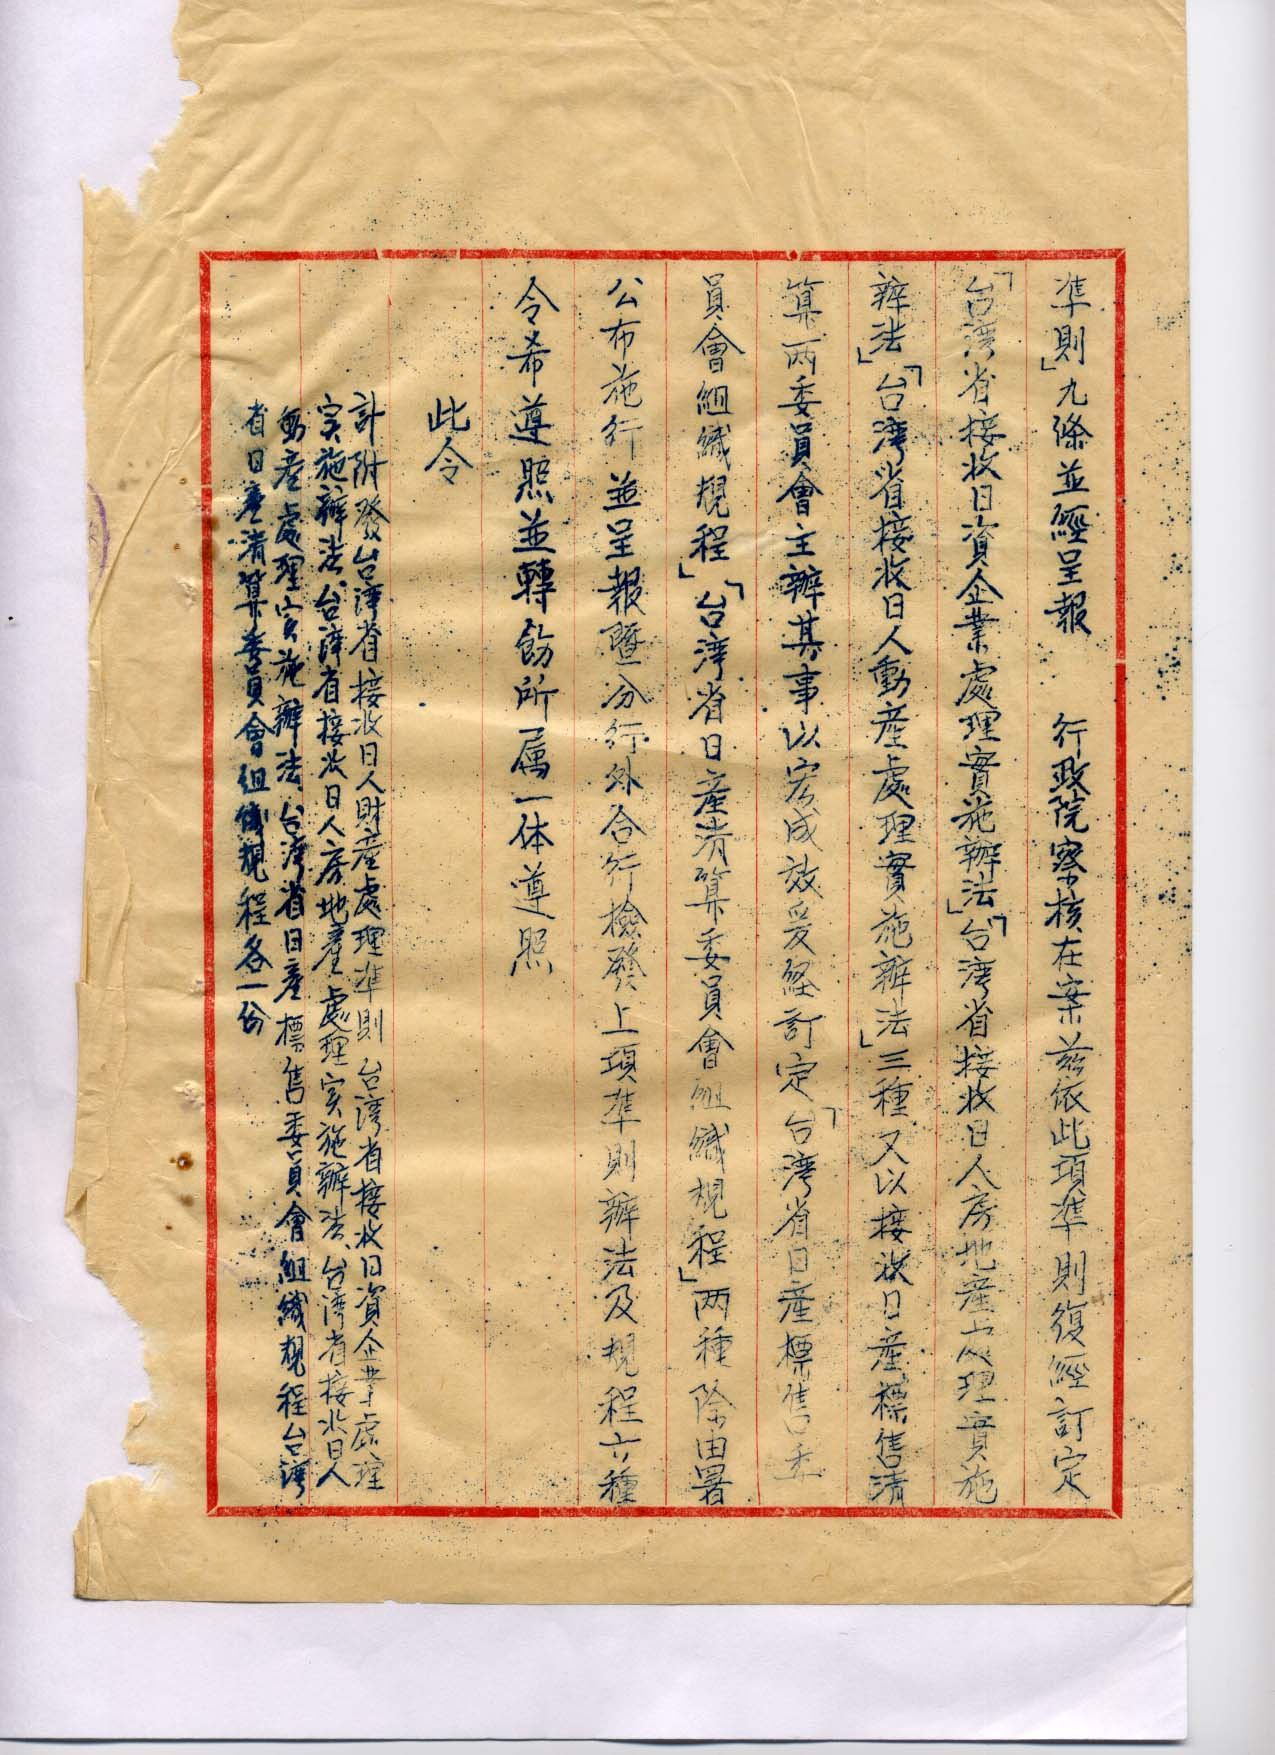 準則」九條並經呈報　行政院察核在案茲依此項準則復經訂定
「台湾省接收日資企業處理實施辦法」「台湾省接收日人房地產處理實施
辦法」「台湾省接收日人動產處理實施辦法」三種又以接收日產標售清
算两委員會主辦其事以宏成效爰経訂定「台湾省日產標售委
員會組織規程」「台湾省日產清算委員會組織規程」两種除由署
公布施行並呈報暨分行外合行檢發上項準則辦法及規程六種
令希遵照並轉飭所属一体遵照
此令
計附發台湾省接收日人財產處理準則台湾省接收日資企業處理
実施辦法、台湾省接收日人房地產處理実施辦法、台湾省接收日人
動產處理实施辦法、台湾省日產標售委員會組織規程台湾
省日產清算委員會組織規程各一份